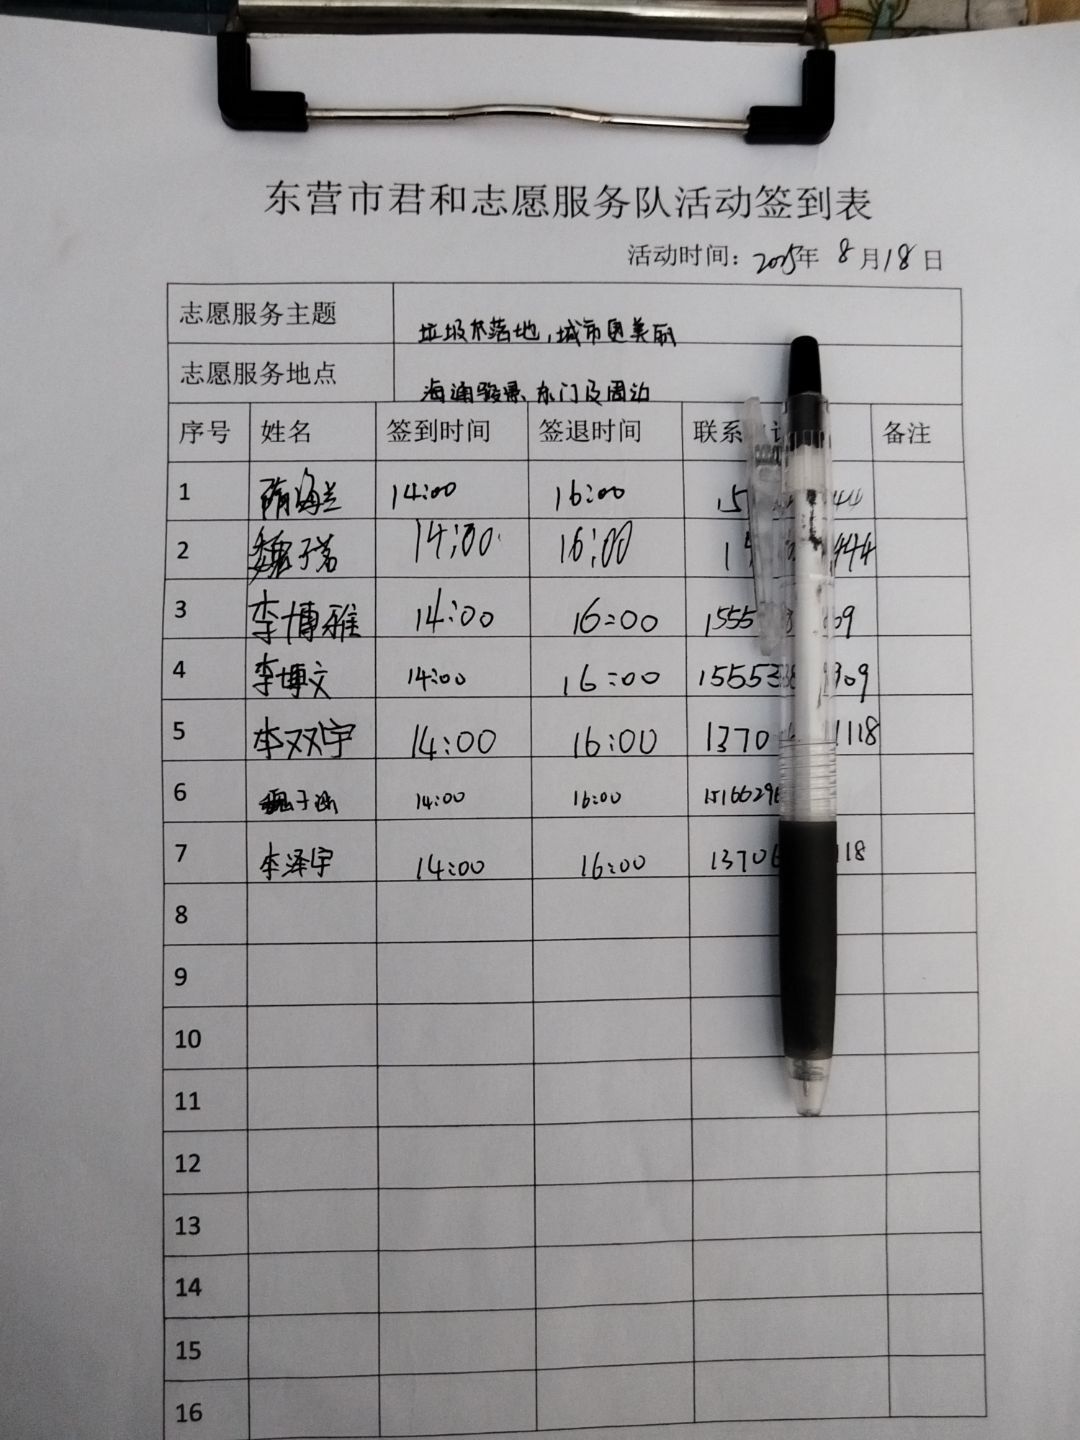 东营市君和志愿服务队活动签到表
活动时间：2025年 8月18日
志愿服务主题 垃圾不落地，城市更美丽
志愿服务地点 海通骏景东门及周边
序号 姓名 签到时间 签退时间 联系 备注
1 隋海兰 14:00 16:00
2 魏子茗 14:00 16:00
3 李博雅 14:00 16:00 1555
4 李博文 14:00 16:00 15553 909
5 李双宇 14:00 16:00 1370 1118
6 魏子涵 14:00 16:00 1516629
7 李泽宇 14:00 16:00 1370 118
8
9
10
11
12
13
14
15
16